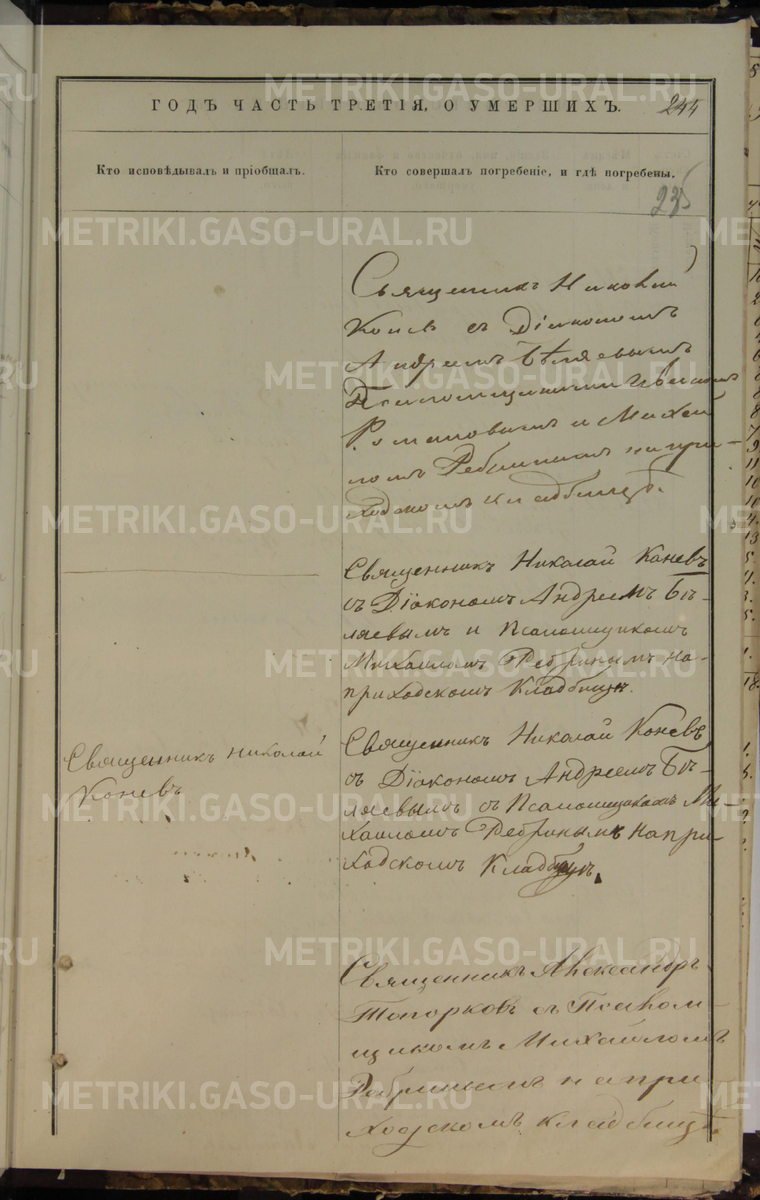 ГОДЪ ЧАСТЬ ТРЕТІЯ, О УМЕРШИХЪ.
244
Кто исповѣдывалъ и пріобщалъ.
Кто совершалъ погребеніе, и гдѣ погребены.
235
Священникъ Николай
Конев съ Діакономъ
Андреемъ Бѣляевымъ
Псаломщиками Иваномъ
Романовымъ и Михаи
ломъ Ребринымъ на при-
ходскомъ кладбищѣ.
Священникъ Николай Коневъ
съ Діакономъ Андреемъ Бѣ-
ляевымъ и Псаломщикомъ
Михаиломъ Ребринымъ на
приходскомъ Кладбищѣ.
Священникъ Николай
Коневъ
Священникъ Николай Коневъ
съ Діакономъ Андреемъ Бѣ-
ляевымъ съ Псаломщикомъ Ми-
хаиломъ Ребринымъ на при-
ходскомъ Кладбищѣ.
Священникъ Александръ
Топорковъ съ Псалом-
щикомъ Михаиломъ
Ребринымъ на при-
ходскомъ кладбищѣ.
METRIKI.GASO-URAL.RU